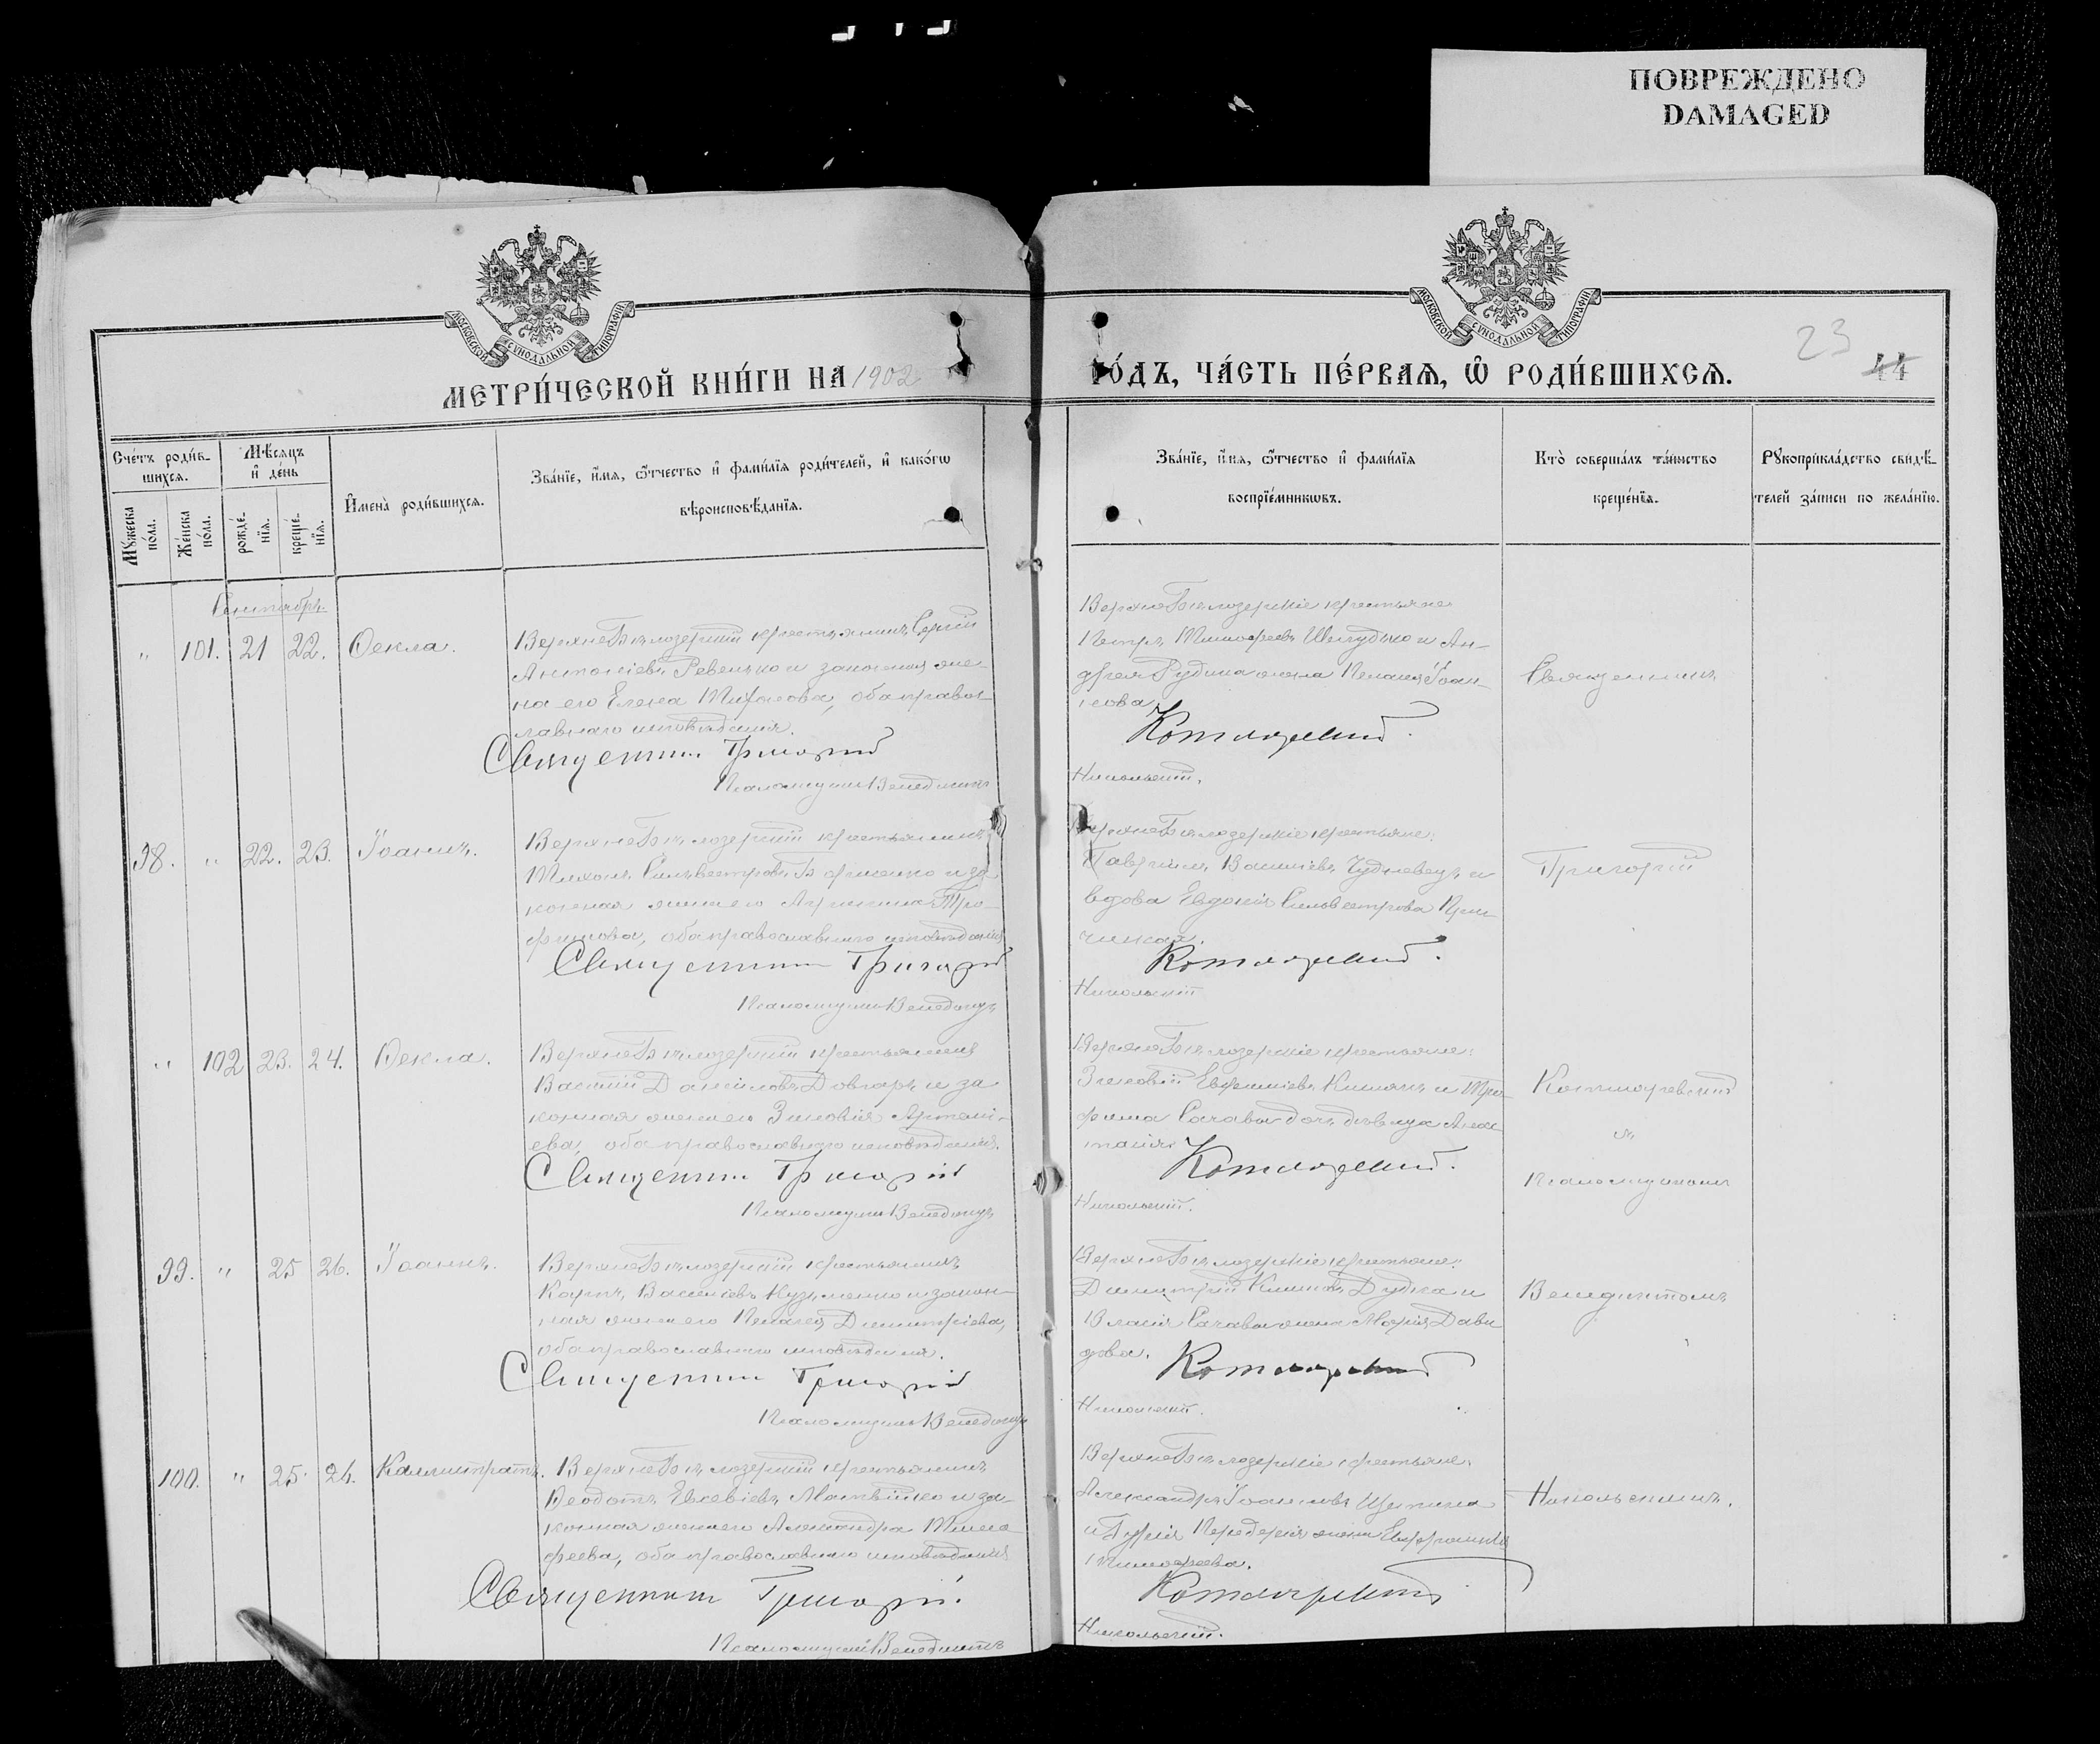 ПОВРЕЖДЕНО
DAMAGED
МОСКОВСКОЙ СѴНОДАЛЬНОЙ ТИПОГРАФІИ
МОСКОВСКОЙ СѴНОДАЛЬНОЙ ТИПОГРАФІИ
23
44
МЕТРИ́ЧЕСКОЙ КНИ́ГИ НА 1902
ГО́ДЪ, ЧА́СТЬ ПЕ́РВАЯ, Ѡ҆ РОДИ́ВШИХСЯ.
Сче́тъ роди́в-
шихся.
Мѣ́сяцъ
и҆ де́нь
Мꙋ́жеска
по́ла.
Же́нска
по́ла.
рожде́-
нїя.
креще́-
нїя.
И҆мена̀ роди́вшихся.
Зва́нїе, и҆́мя, ѻ҆́тчество и҆ фами́лїя роди́телей, и҆ како́гѡ
вѣроисповѣ́данїя.
Зва́нїе, и҆́мя, ѻ҆́тчество и҆ фами́лїя
воспрїе́мникѡвъ.
Кто̀ соверша́лъ та́инство
креще́нїя.
Рꙋкоприкла́дство свидѣ́-
телей за́писи по жела́нїю.
Сентябрь.
" 101. 21 22. Ѳекла.
ВерхнеБѣлозерскій крестьянинъ Сергій
Антоніевъ Ревенко и законная же-
на его Елена Михаилова, оба правос-
лавнаго исповѣданія.
Священникъ Григорій
Псаломщикъ Венедиктъ
ВерхнеБѣлозерскіе крестьяне
Петръ Тимофеевъ и Ан-
дрея Рудика жена Пелагія Іоан-
нова.
Котляревскій.
Никольскій.
Священникъ
98. " 22. 23. Іоаннъ.
ВерхнеБѣлозерскій крестьянинъ
Сильвестровъ и за-
конная жена его Тро-
фимова, оба православнаго исповѣданія
Священникъ Григорій
Псаломщикъ Венедиктъ
ВерхнеБѣлозерскіе крестьяне:
Гавріилъ Василіевъ Чудновецъ и
вдова Евдокія Сильвестрова
Котляревскій.
Никольскій
Григорій
" 102 23. 24. Ѳекла.
ВерхнеБѣлозерскій крестьянинъ
Василій Даніиловъ Довгаръ и за
конная жена его Зиновія
ева, оба православнаго исповѣданія.
Священникъ Григорій
Псаломщикъ Венедиктъ
ВерхнеБѣлозерскіе крестьяне:
Зиновій Евфиміевъ и Тро-
фима дочь дѣвица
Котляревскій.
Никольскій.
Котляревскій
съ
Псаломщикомъ
99. " 25 26. Іоаннъ.
ВерхнеБѣлозерскій крестьянинъ
Карпъ Василіевъ Кузьменко и закон-
ная жена его Пелагея Димитріева,
оба православнаго исповѣданія.
Священникъ Григорій
Псаломщикъ Венедиктъ
ВерхнеБѣлозерскіе крестьяне:
Димитрій Дудка и
Власія жена Марія Дави
дова.
Котляревскій
Никольскій.
Венедиктомъ
100. " 25. 26. Каллистратъ.
ВерхнеБѣлозерскій крестьянинъ
Ѳеодотъ Евсевіевъ Матвійко и за-
конная жена его Александра Тимо
феева, оба православнаго исповѣданія
Священникъ Григорій.
Псаломщикъ Венедиктъ
ВерхнеБѣлозерскіе крестьяне:
Александръ Іоанновъ Щепина
и Гурія жена Евфросинія
Тимофеева.
Котляревскій
Никольскій.
Никольскимъ.